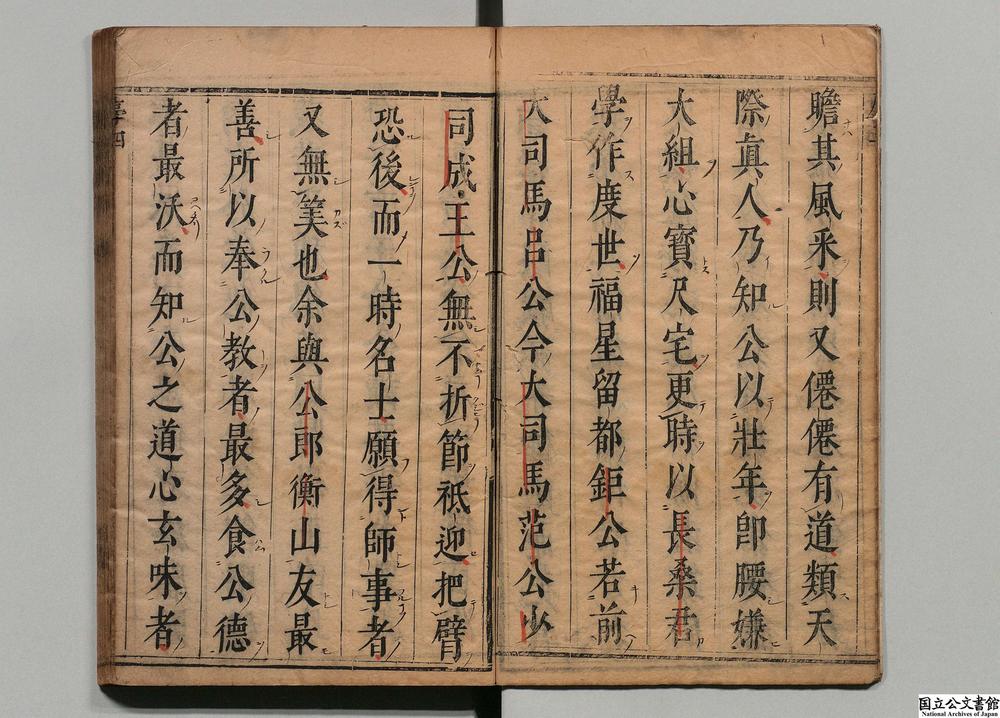 瞻其風釆則又僊僊有道類天
際眞人乃知公以壯年卽腰嫌
大組心寶尺宅更時以長桑君
學作度世福星留都鉅公若前
大司馬呂公今大司馬范公少
司成王公無不折節祗迎把臂
恐後而一時名士願得師事者
又無筭也余與公郎衡山友最
善所以奉公教者最多食公德
者最沃而知公之道心玄味者
国立公文書館
National Archives of Japan